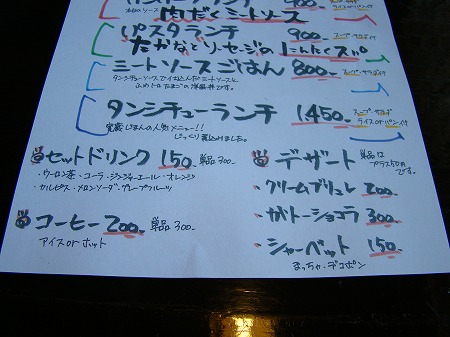 肉だくミートソース
パスタランチ 900-
たかなとソーセージのにんにくスパ
ミートソースごはん 800- スープ・サラダ付
タンシチューソースで
タンシチューランチ 1450- スープ・サラダ ライスorパン付
覚蔵じまんの人気メニュー!!
じっくり煮込みました。
セットドリンク 150- 単品300-
・ウーロン茶・コーラ・ジンジャーエール・オレンジ
・カルピス・メロンソーダ・グレープフルーツ
コーヒー 200- 単品300-
アイスorホット
デザート 単品はプラス50円です。
・クリームブリュレ 200-
・ガトーショコラ 300-
・シャーベット 150-
まっちゃ・デコポン